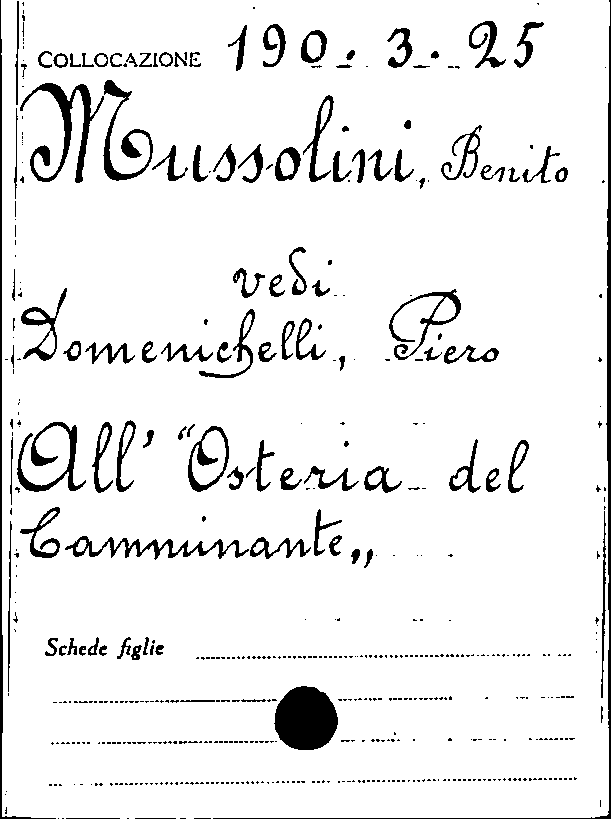 COLLOCAZIONE 190.3.25
Mussolini, Benito
vedi
Domenichelli, Piero
All' "Osteria del
Camminante„
Schede figlie